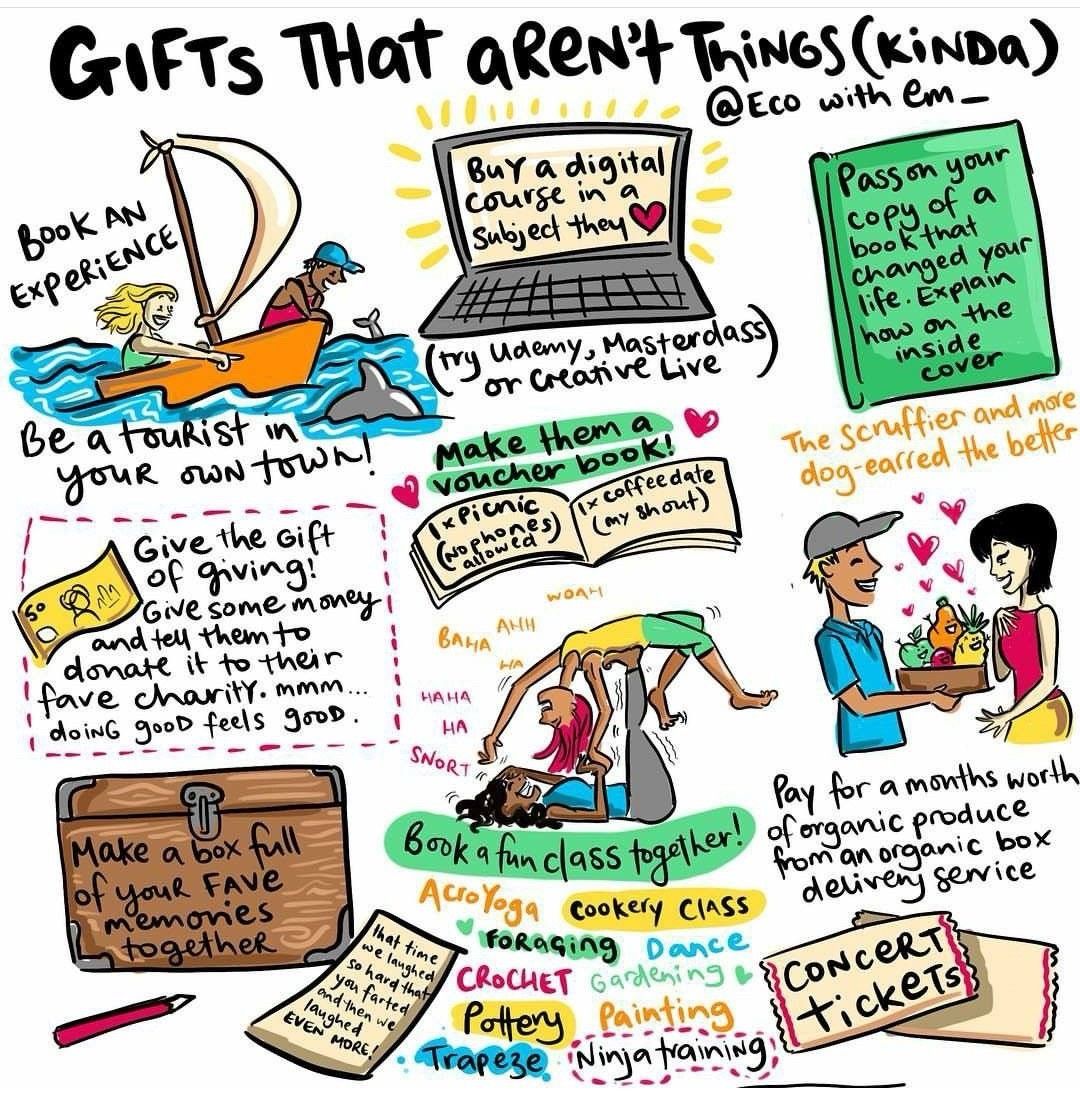 GIFTS THAT AREN'T THINGS (KINDA)
@Eco with em_
BOOK AN
EXPERIENCE
Be a tourist in
your own town!
Buy a digital
course in a
subject they ❤
(try Udemy, Masterclass
or Creative Live)
Pass on your
copy of a
book that
changed your
life. Explain
how on the
inside
cover
The scruffier and more
dog-earred the better
Make them a
voucher book!
1x Picnic
(no phones
allowed)
1x coffee date
(my shout)
50
Give the Gift
of giving!
Give some money
and tell them to
donate it to their
fave charity. mmm...
doing good feels good.
WOAH
AHH
BAHA
HA
HAHA
HA
SNORT
Book a fun class together!
AcroYoga
Cookery Class
Foraging
Dance
CROCHET
Gardening
Pottery
Painting
Trapeze
Ninja training
Pay for a months worth
of organic produce
from an organic box
delivery service
Make a box full
of your FAVE
memories
together
That time
we laughed
so hard that
you farted
and then we
laughed
EVEN MORE!
CONCERT
tickets